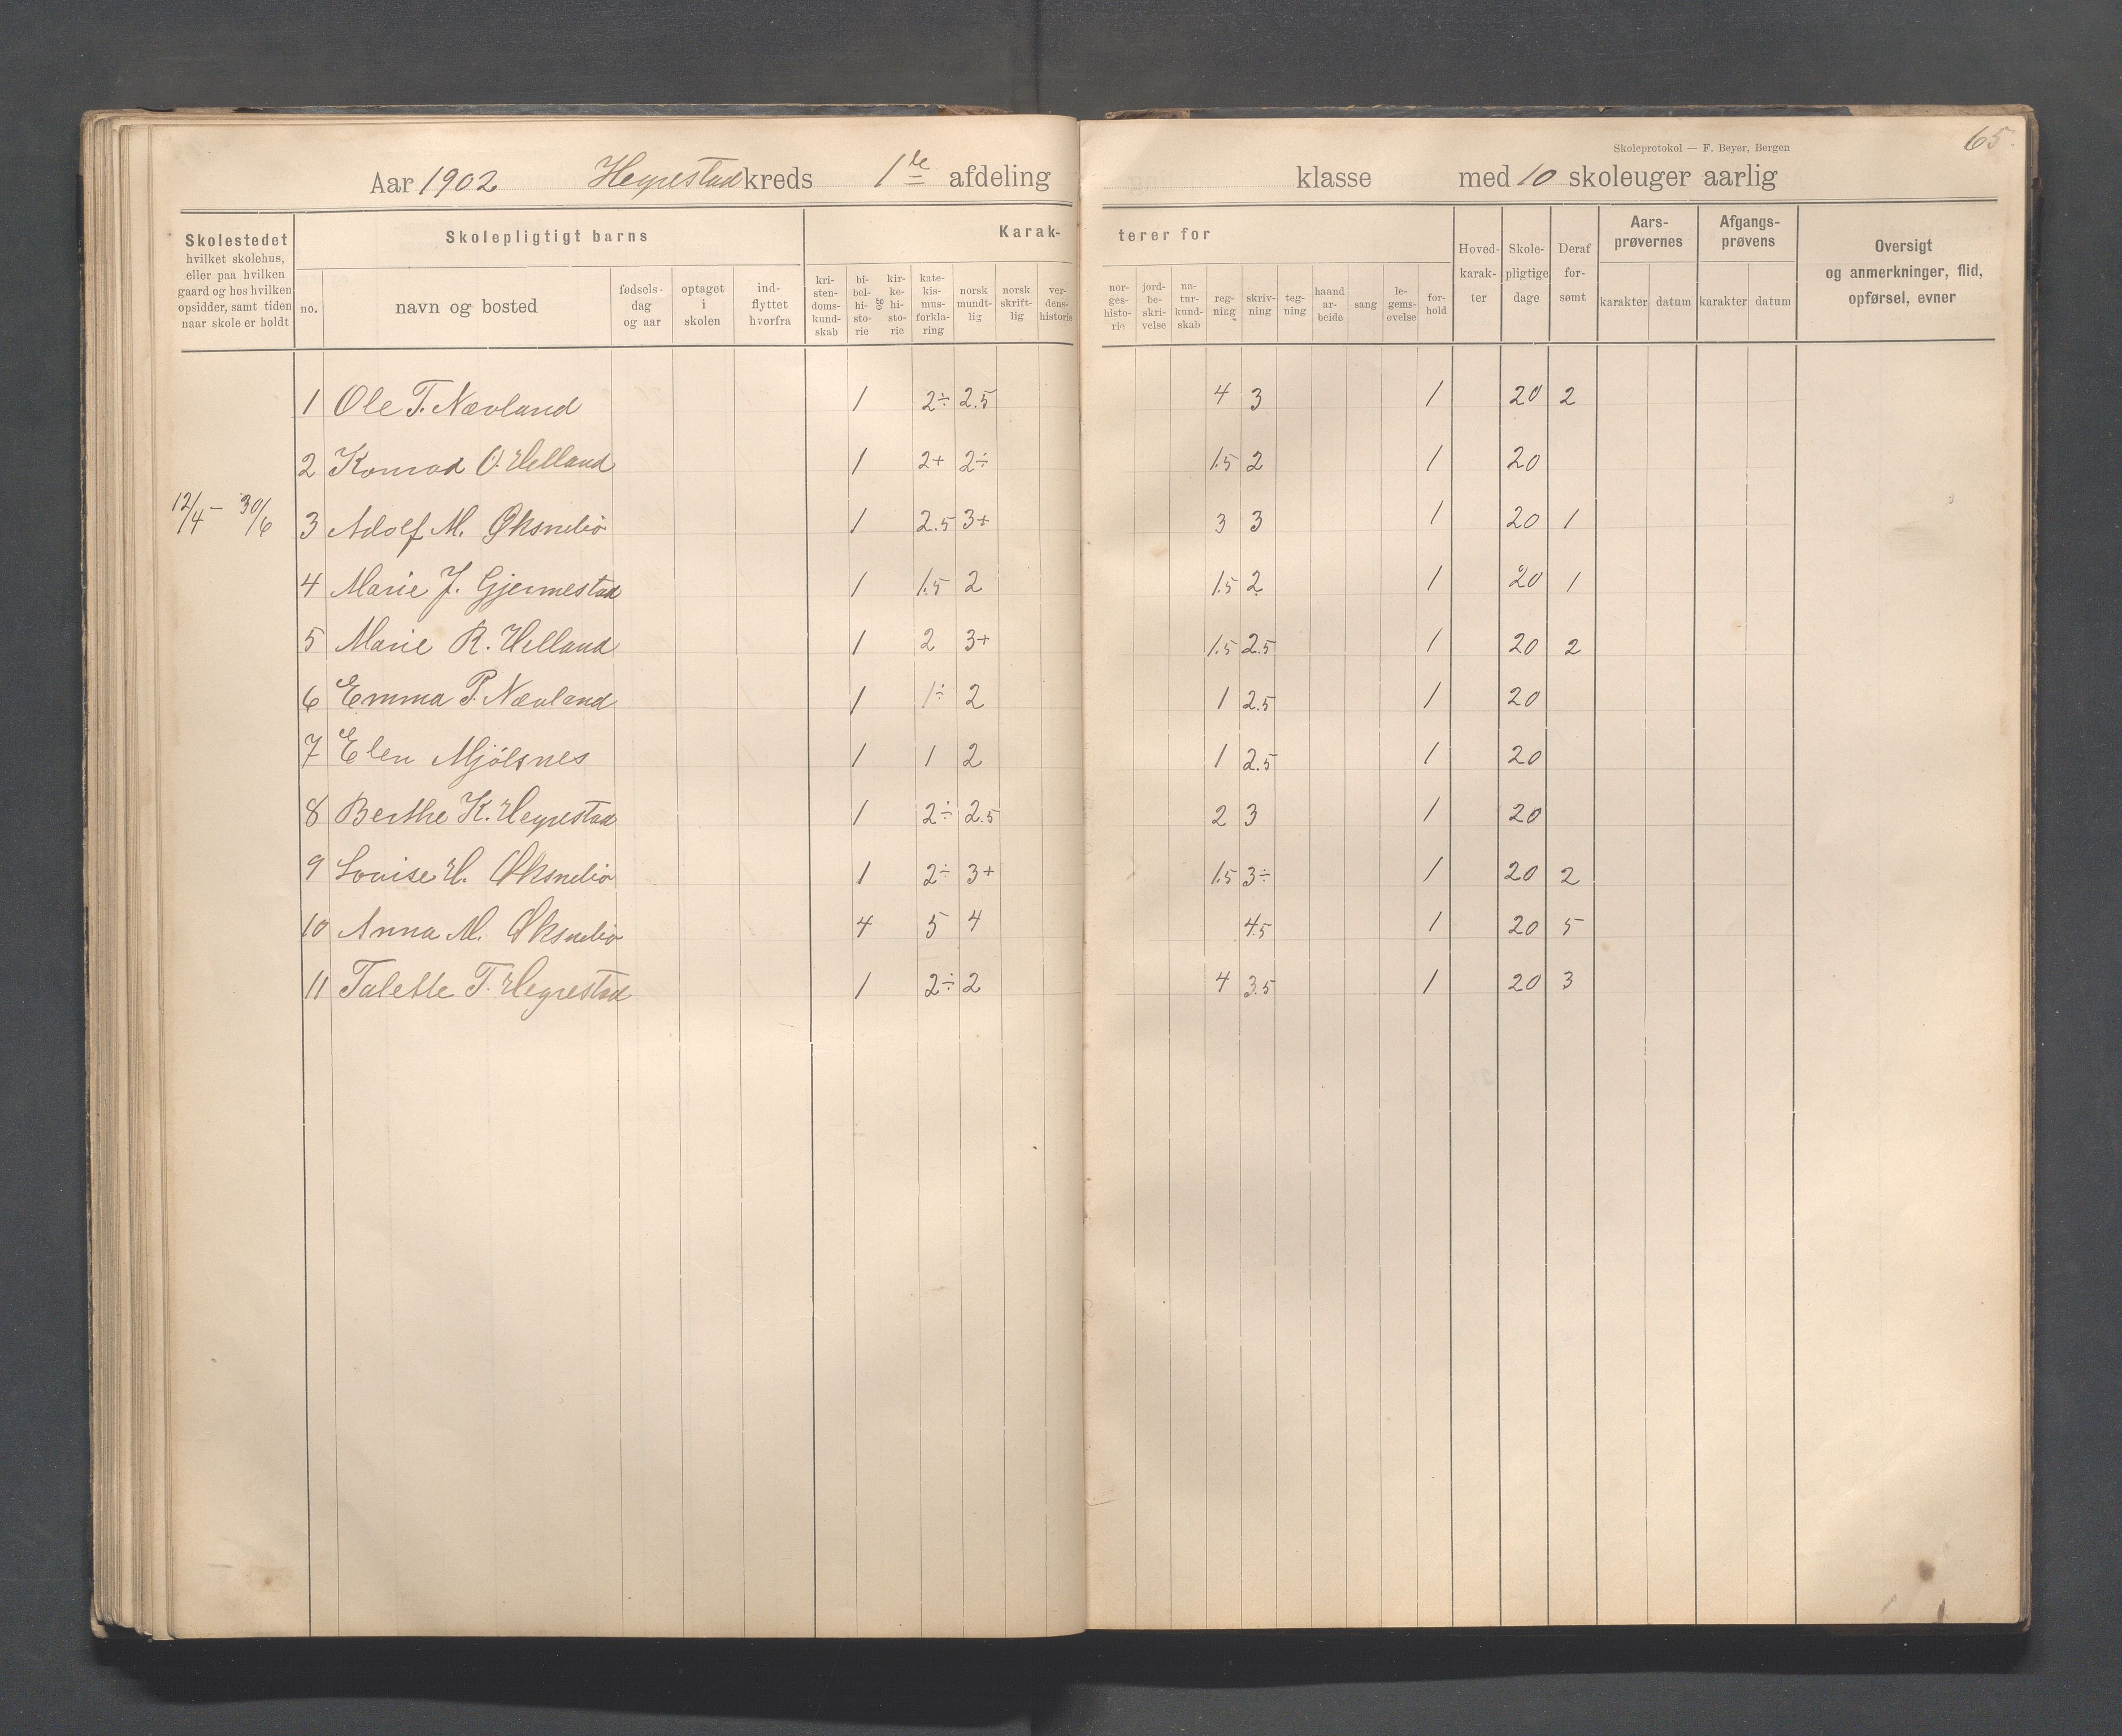 65.
Skoleprotokol — F. Beyer, Bergen
Aar 1902 Hegrestad kreds 1ste afdeling klasse med 10 skoleuger aarlig
Skolestedet hvilket skolehus, eller paa hvilken gaard og hos hvilken opsidder, samt tiden naar skole er holdt
Skolepligtigt barns
no.
navn og bosted
fødsels-dag og aar
optaget i skolen
ind-flyttet hvorfra
Karak-terer for
kri-sten-doms-kund-skab
bi-bel-hi-sto-rie
og
kir-ke-hi-sto-rie
kate-kis-mus-forkla-ring
norsk mundt-lig
norsk skrift-lig
ver-dens-historie
nor-ges-histo-rie
jord-be-skri-velse
na-tur-kund-skab
reg-ning
skriv-ning
teg-ning
haand ar-beide
sang
le-gems-øvelse
for-hold
Hoved-karak-ter
Skole-pligtige dage
Deraf for-sømt
Aars-prøvernes
karakter datum
Afgangs-prøvens
karakter datum
Oversigt og anmerkninger, flid, opførsel, evner
1 Ole T. Nævland 1 2÷ 2.5 4 3 1 20 2
2 Konrad O. Helland 1 2+ 2÷ 1.5 2 1 20
12/4 – 30/6 3 Adolf M. Øksnebio 1 2.5 3+ 3 3 1 20 1
4 Marie J. Gjermestad 1 1.5 2 1.5 2 1 20 1
5 Marie R. Helland 1 2 3+ 1.5 2.5 1 20 2
6 Emma P. Nævland 1 1÷ 2 1 2.5 1 20
7 Elen Mjölsnes 1 1 2 1 2.5 1 20
8 Berthe K. Hegrestad 1 2÷ 2.5 2 3 1 20
9 Lovise H. Øksnebio 1 2÷ 3+ 1.5 3÷ 1 20 2
10 Anna M. Øksnebio 4 5 4 4.5 1 20 5
11 Talette T. Hegrestad 1 2÷ 2 4 3.5 1 20 3